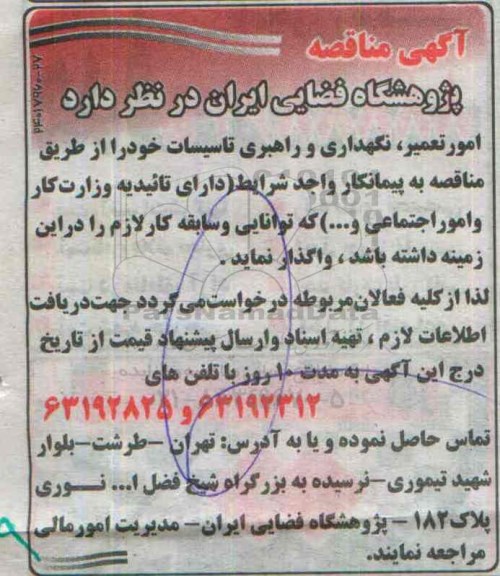 آگهی مناقصه
پژوهشگاه فضایی ایران در نظر دارد
امور تعمیر، نگهداری و راهبری تاسیسات خود را از طریق
مناقصه به پیمانکار واجد شرایط (دارای تائیدیه وزارت کار
و امور اجتماعی و...) که توانایی و سابقه کار لازم را در این
زمینه داشته باشد ، واگذار نماید .
لذا از کلیه فعالان مربوطه درخواست می گردد جهت دریافت
اطلاعات لازم ، تهیه اسناد و ارسال پیشنهاد قیمت از تاریخ
درج این آگهی به مدت ۱۰ روز با تلفن های
۶۳۱۹۲۳۱۲ و ۶۳۱۹۲۸۲۵
تماس حاصل نموده و یا به آدرس: تهران –طرشت–بلوار
شهید تیموری–نرسیده به بزرگراه شیخ فضل ا... نـــوری
پلاک ۱۸۲ – پژوهشگاه فضایی ایران– مدیریت امور مالی
مراجعه نمایند.
ParsNamadData